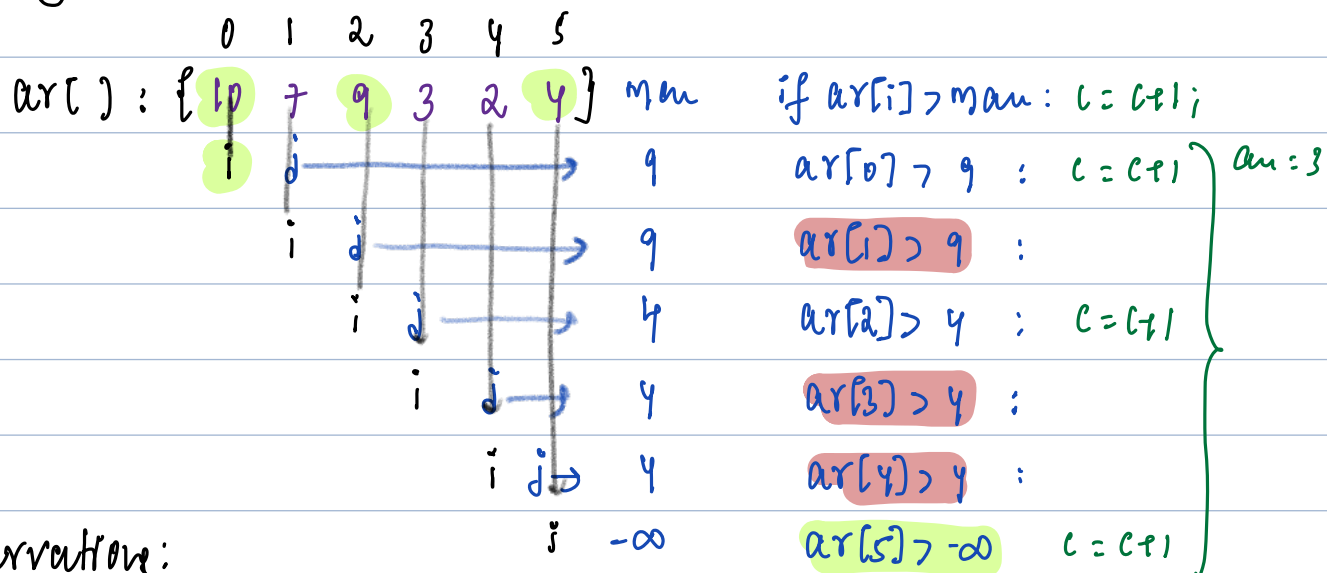 0 1 2 3 4 5
ar[ ] : { 10 7 9 3 2 4 } max if ar[i] > max : c = c+1;
i j 9 ar[0] > 9 : c = c+1 ans = 3
i j 9 ar[1] > 9 :
i j 4 ar[2] > 4 : c = c+1
i j 4 ar[3] > 4 :
i j 4 ar[4] > 4 :
i -∞ ar[5] > -∞ c = c+1
rvations: